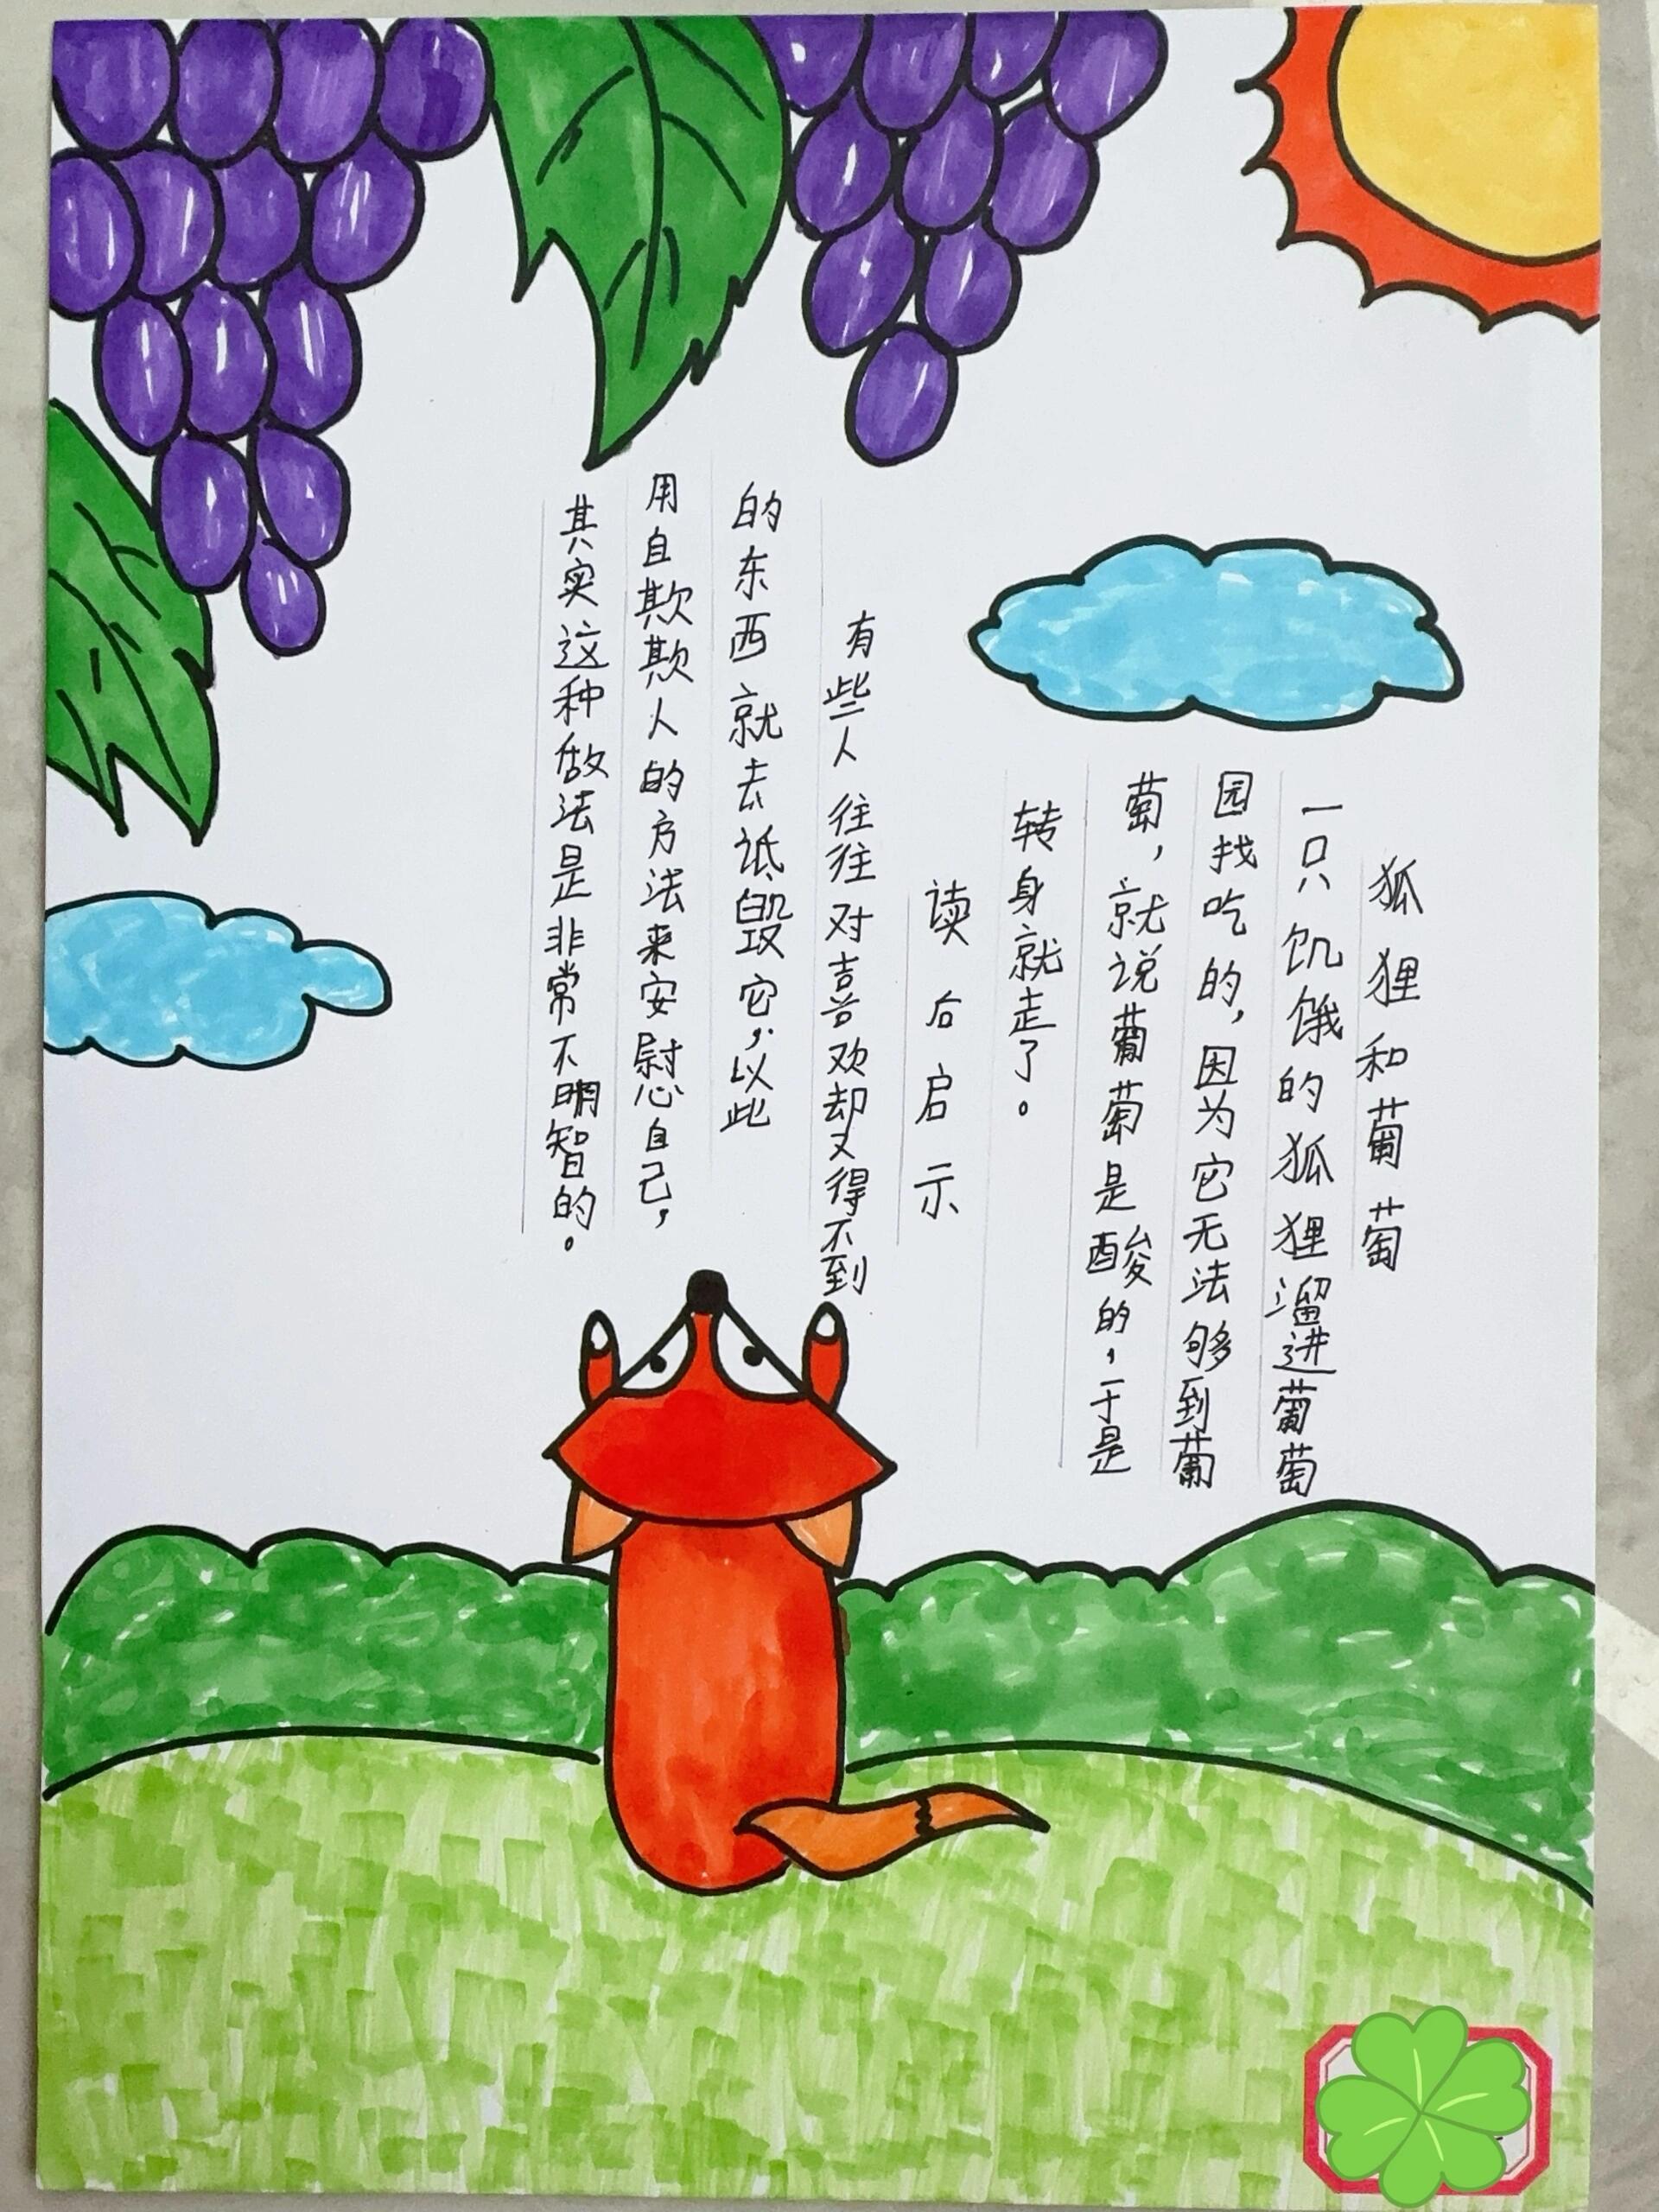 狐狸和葡萄
一只饥饿的狐狸溜进葡萄
园找吃的,因为它无法够到葡
萄,就说葡萄是酸的,于是
转身就走了。
读后启示
有些人往往对喜欢却又得不到
的东西就去诋毁它,以此
用自欺欺人的方法来安慰自己,
其实这种做法是非常不明智的。